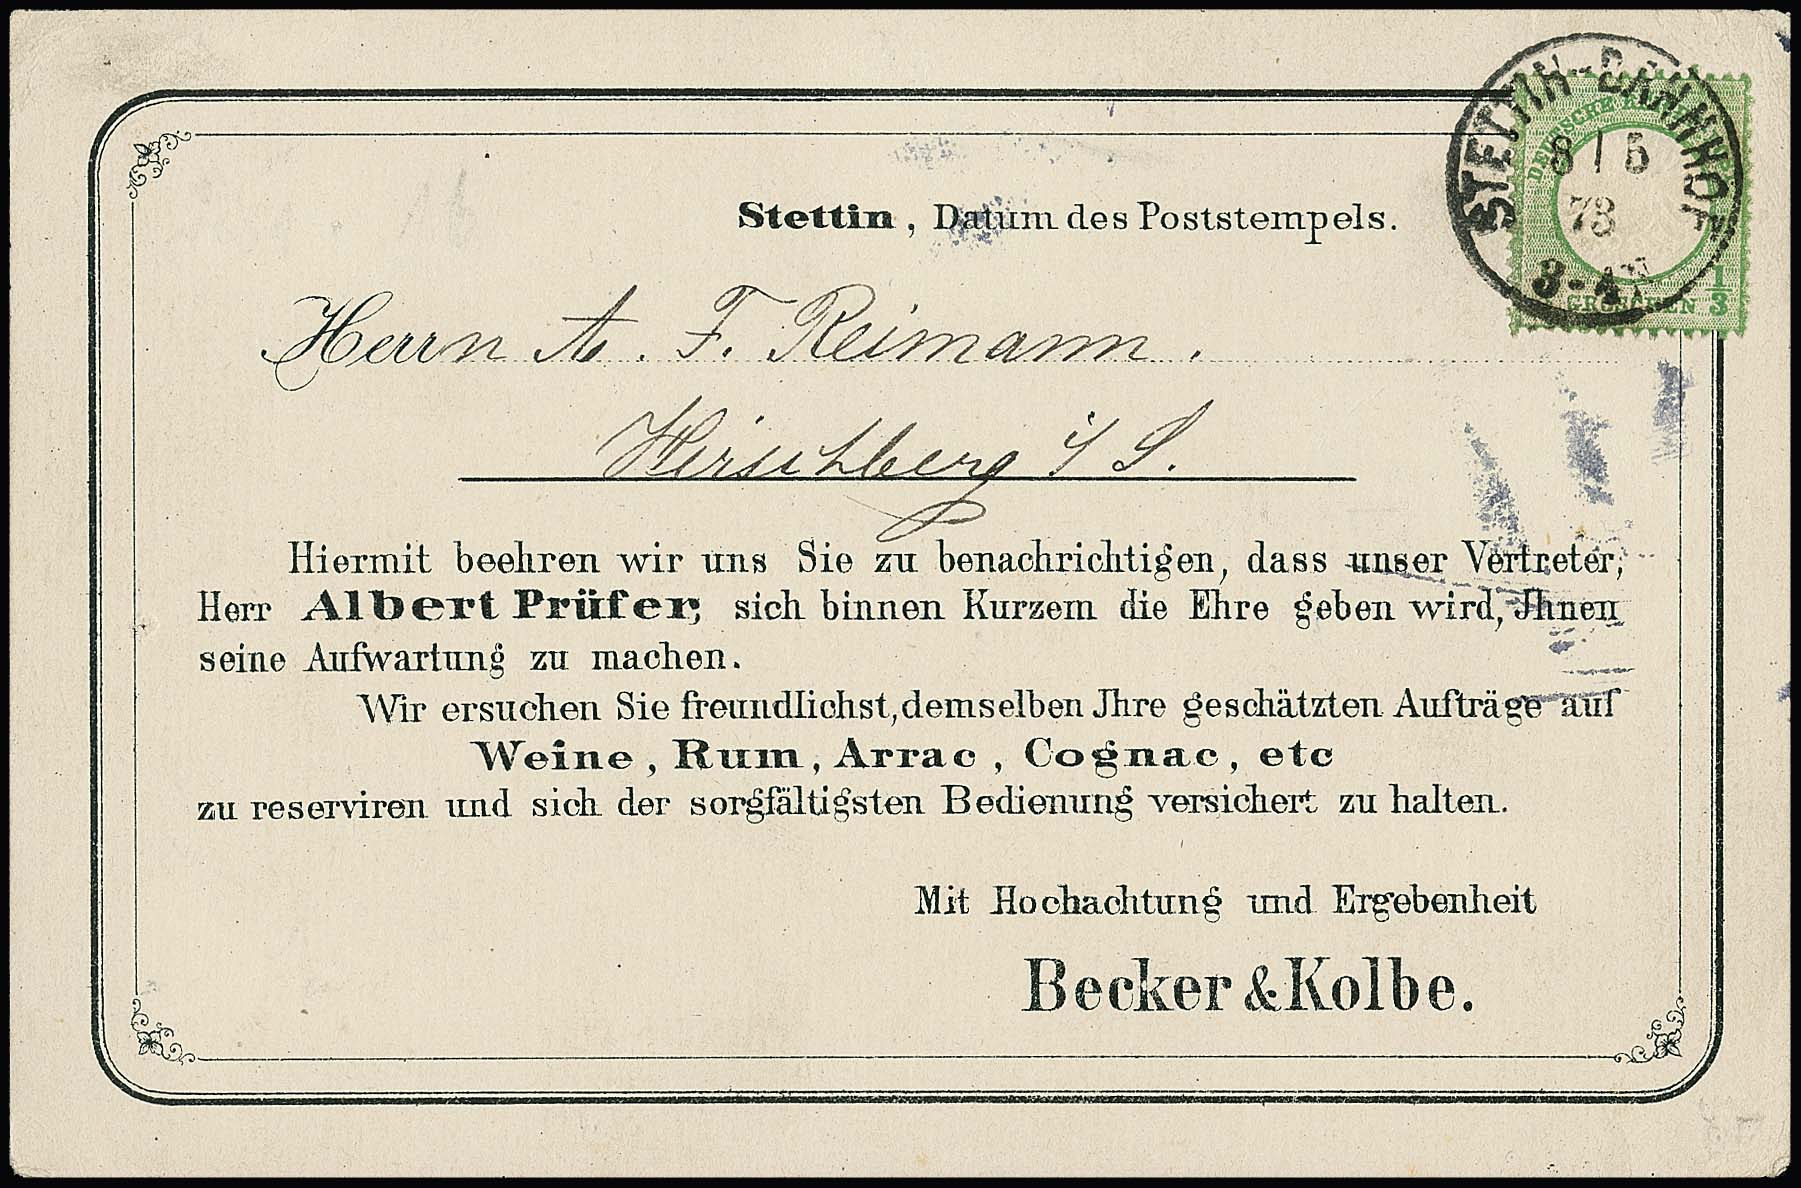 STETTIN-BAHNHOF
8 | 5
73
3-4N
DEUTSCHE
GROSCHEN 1/3
Stettin, Datum des Poststempels.
Herrn A. F. Reimann.
Hirschberg i/S.
Hiermit beehren wir uns Sie zu benachrichtigen, dass unser Vertreter,
Herr Albert Prüfer, sich binnen Kurzem die Ehre geben wird, Jhnen
seine Aufwartung zu machen.
Wir ersuchen Sie freundlichst, demselben Jhre geschätzten Aufträge auf
Weine, Rum, Arrac, Cognac, etc
zu reserviren und sich der sorgfältigsten Bedienung versichert zu halten.
Mit Hochachtung und Ergebenheit
Becker & Kolbe.